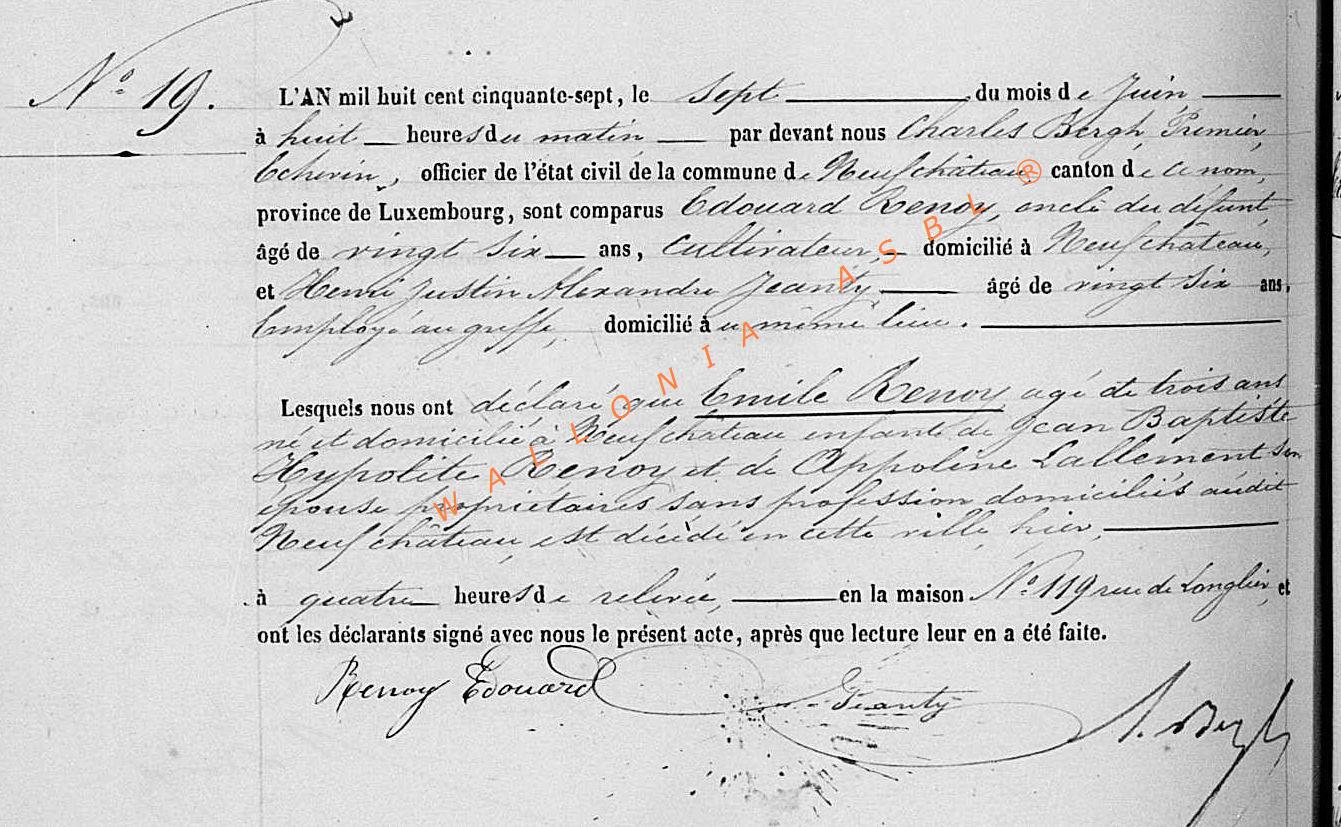 N° 19.
L'AN mil huit cent cinquante-sept, le sept du mois de Juin
à huit heures du matin par devant nous Charles Bergh, Premier
Echevin, officier de l'état civil de la commune de Neufchâteau, canton de ce nom,
province de Luxembourg, sont comparus Edouard Renoy, oncle du défunt,
âgé de vingt six ans, cultivateur, domicilié à Neufchâteau,
et Henri Justin Alexandre Jeanty âgé de vingt six ans,
Employé au greffe, domicilié au même lieu.
Lesquels nous ont déclaré que Emile Renoy agé de trois ans
né et domicilié à Neufchâteau enfant de Jean Baptiste
Hypolite Renoy et de Appoline Lallement son
épouse propriétaires sans profession domiciliés audit
Neufchâteau, est décédé en cette ville, hier,
à quatre heures de relevée, en la maison N° 119 rue de Longlier, et
ont les déclarants signé avec nous le présent acte, après que lecture leur en a été faite.
Renoy Edouard Jeanty Bergh
WALLONIA ASBL ®